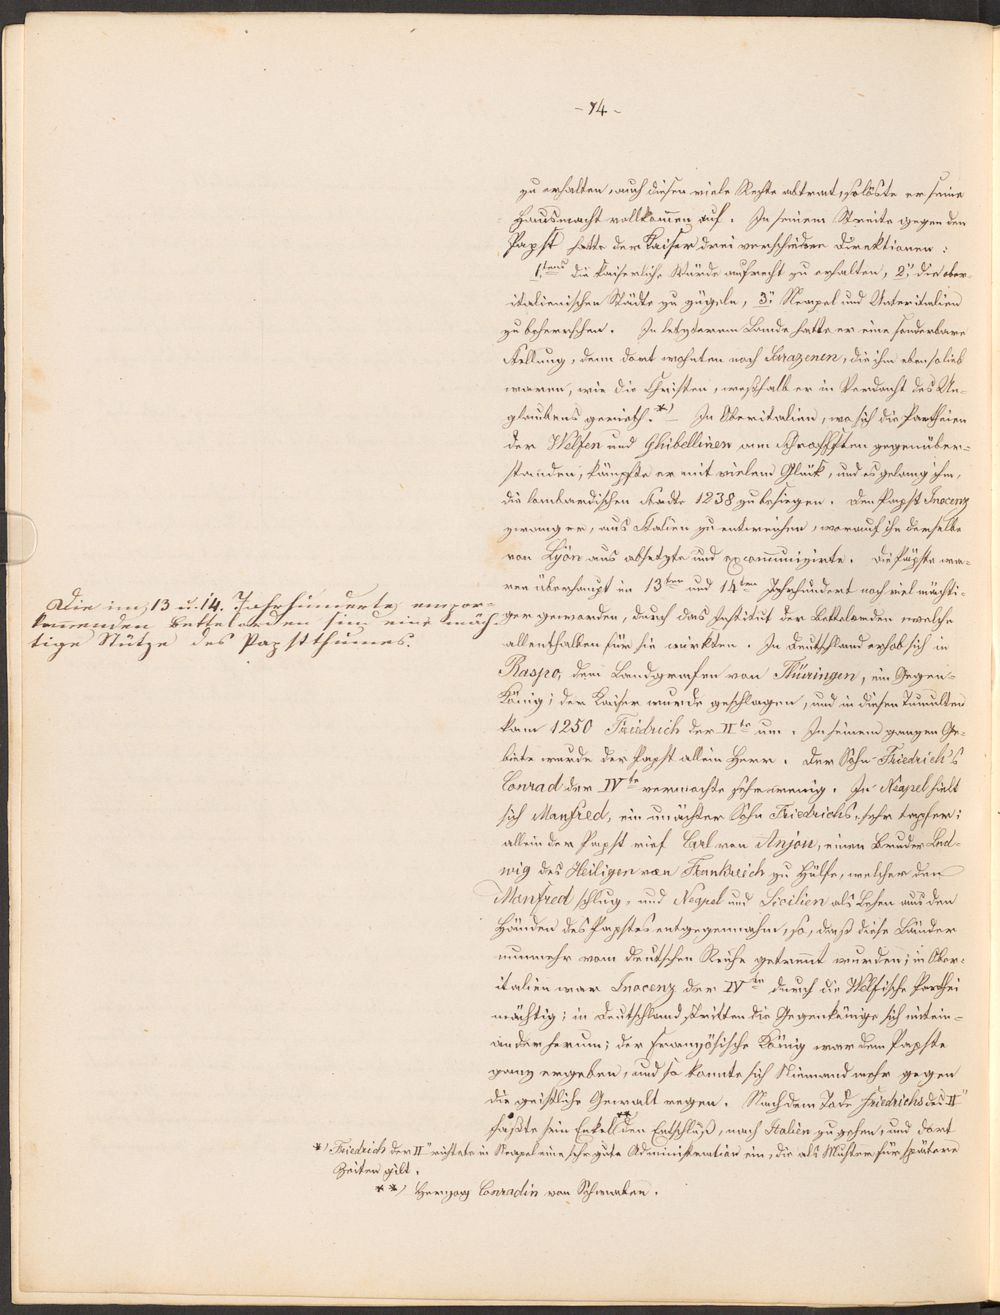 - 74 -
zu erhalten, auch diesen viele Rechte abtrat, so löste er seine
Hausmacht vollkom̅en auf. In seinem Streite gegen den
Papst hatte der Kaiser drei verschiedene Direktionen:
1.tens die kaiserliche Würde aufrecht zu erhalten, 2", die ober-
italienischen Städte zu zügeln, 3" Neapel und Unteritalien
zu beherrschen. In letzterem Lande hatte er eine sonderbare
Stellung, denn dort wohnten noch Sarazenen, die ihm ebenso lieb
waren, wie die Christen, weßhalb er in Verdacht des Un-
glaubens gerieth.*) - In Oberitalien, wo sich die Partheien
der Welfen und Ghibellinen am schroffsten gegenüber-
standen, kämpfte er mit vielem Glück, und es gelang ihm,
die lombardischen Städte 1238 zu besiegen. Den Papst Inocenz
zwang er, aus Italien zu entweichen, worauf ihn derselbe
von Lyön aus absetzte und excom̅unizirte. Die Päpste wa-
ren überhaupt im 13ten und 14ten Jahrhundert noch viel mächti-
ger geworden, durch das Institut der Bettelorden welche
allenthalben für sie wirkten. In Deutschland erhob sich in
Raspo, dem Landgrafen von Thüringen, ein Gegen-
König; der Kaiser wurde geschlagen, und in diesen Tumulten
kam 1250 Friedrich der IIte um. In seinem ganzen Ge-
biete wurde der Papst allein Herr. Der Sohn Friedrich's
Conrad der IVte vermochte sehr wenig. In Neapel hielt
sich Manfred, ein unächter Sohn Friedrichs, sehr tapfer;
allein der Papst rief Carl von Anjou, einen Bruder Lud-
wig des Heiligen von Frankreich zu Hülfe, welcher den
Manfred schlug, und Neapel und Sicilien als Lehen aus den
Händen des Papstes entgegennahm, so, daß diese Länder
nunmehr vom deutschen Reiche getrennt wurden; in Ober-
italien war Inocenz der IVte durch die Welfische Parthei
mächtig; in Deutschland stritten die Gegenkönige sich mitein-
ander herum; der französische König war dem Papste
ganz ergeben, und so konnte sich Niemand mehr gegen
die geistliche Gewalt regen. Nach dem Tode Friedrichs des II"
faßte sein Enkel** den Entschluß, nach Italien zu gehen, und dort
Die im 13 u. 14. Jahrhunderte empor-
kom̅enden Bettelorden sind eine mäch-
tige Stütze des Papstthumes.
*) Friedrich der II" richtete in Neapel eine sehr gute Administration ein, die als Muster für spätere
Zeiten gilt.
**) Herzog Conradin von Schwaben.